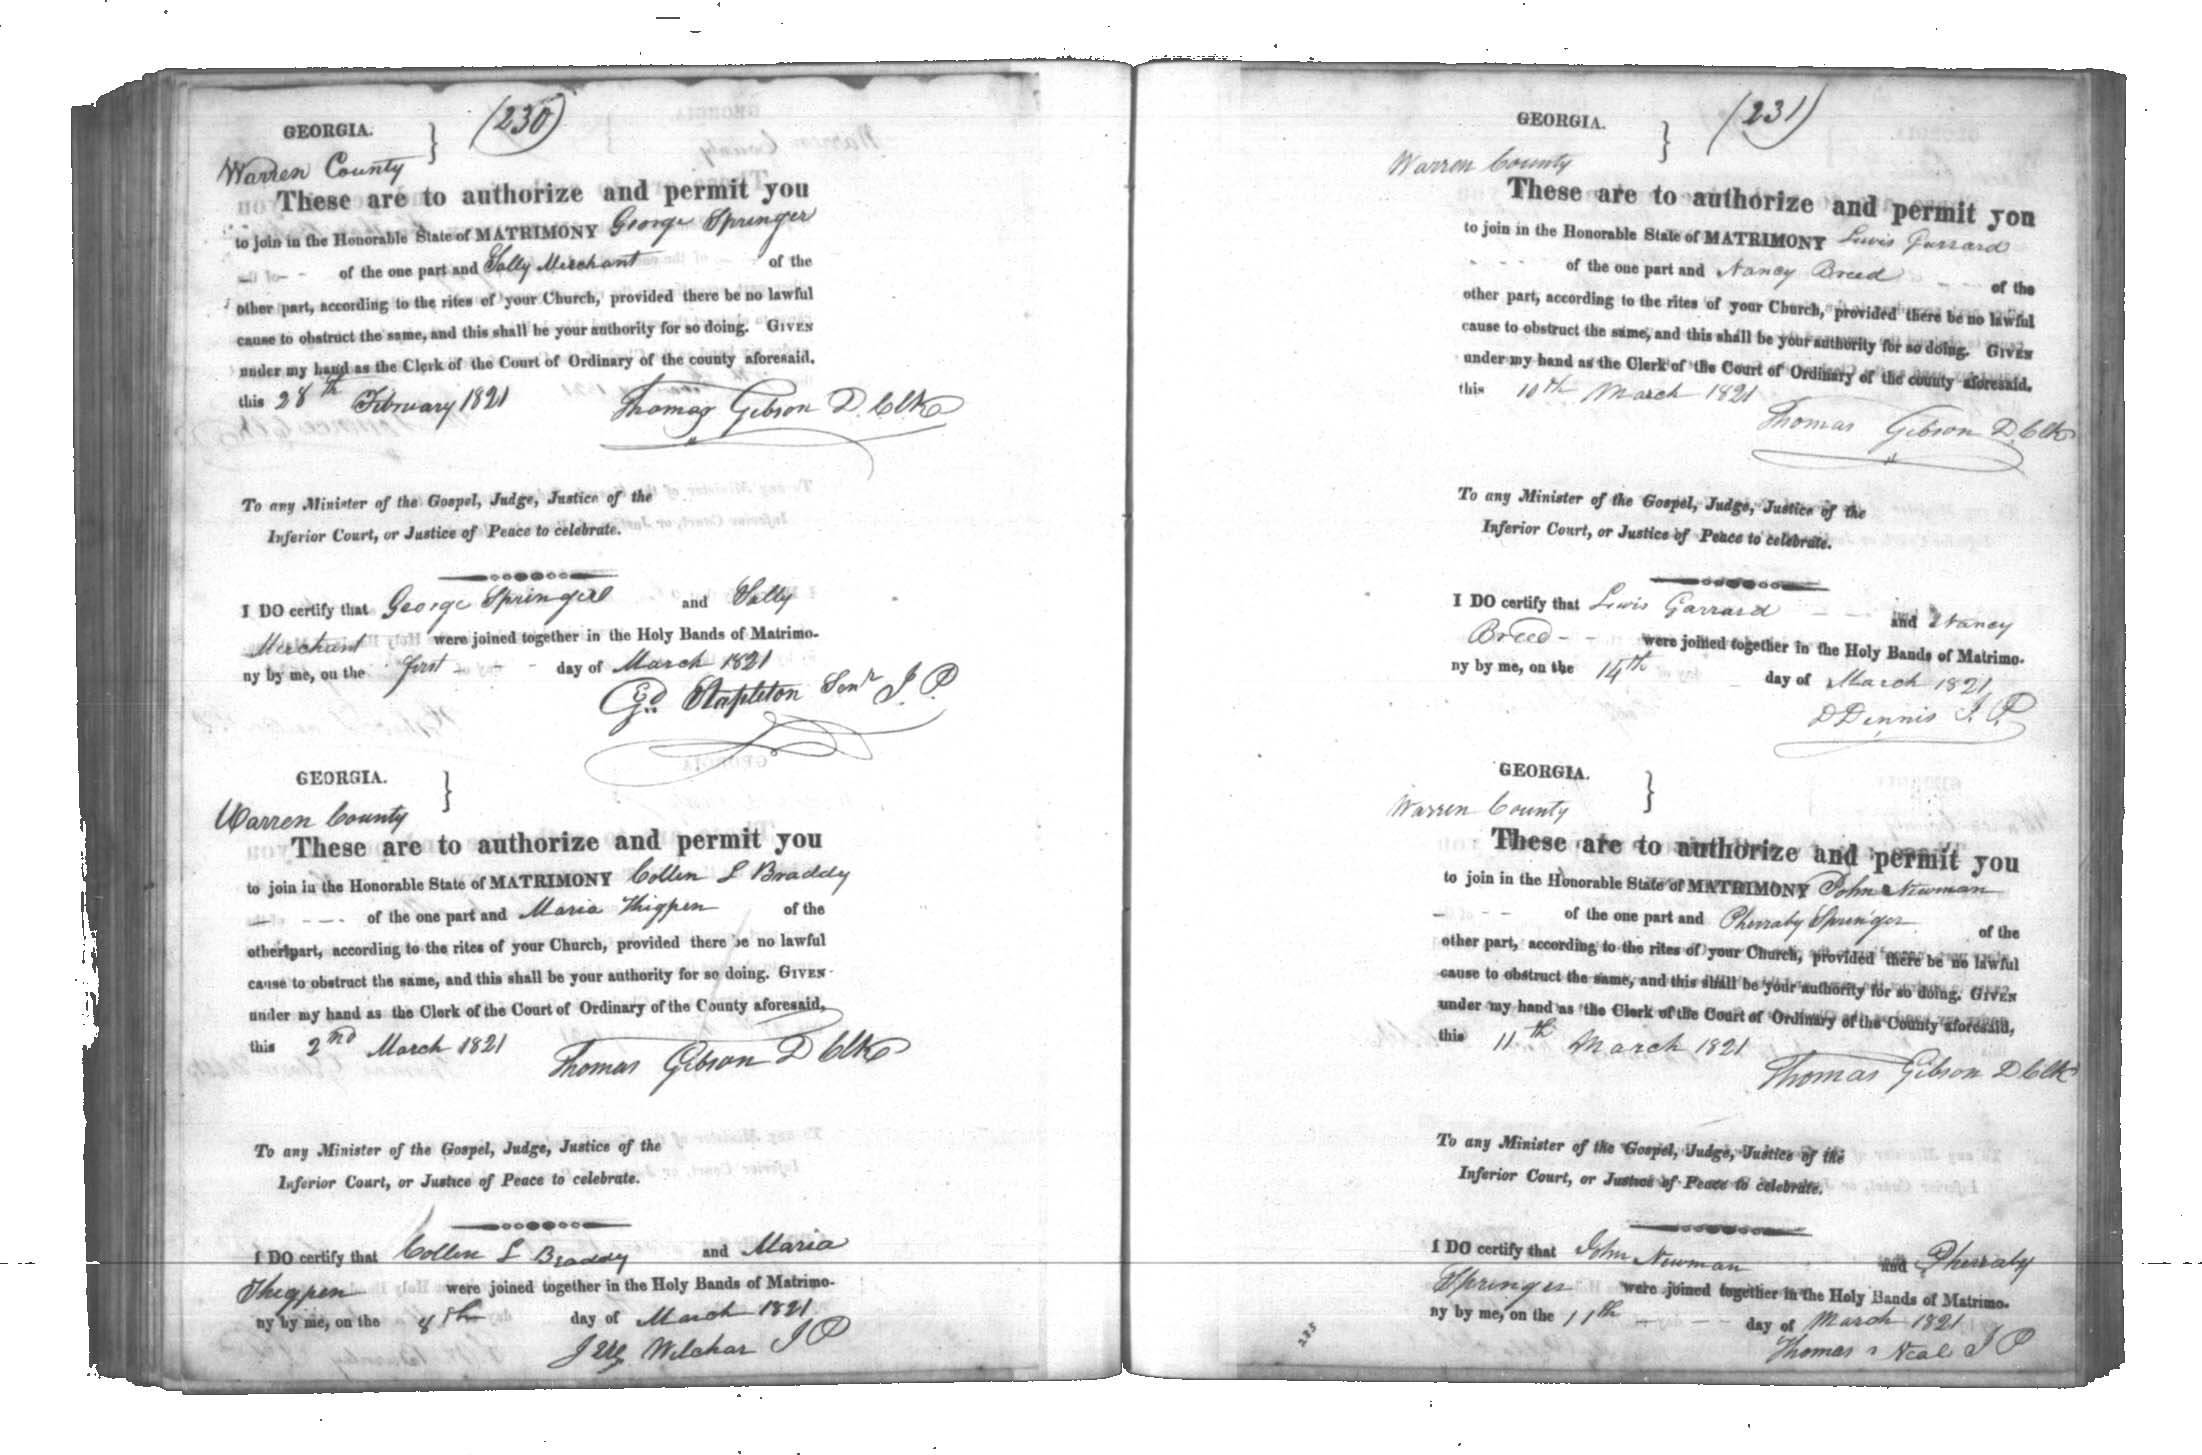 (230)
GEORGIA. }
Warren County
These are to authorize and permit you
to join in the Honorable State of MATRIMONY George Springer
- - - of the one part and Sally Merchant of the
other part, according to the rites of your Church, provided there be no lawful
cause to obstruct the same, and this shall be your authority for so doing. GIVEN
under my hand as the Clerk of the Court of Ordinary of the county aforesaid.
this 28th February 1821
Thomas Gibson D. Clk
To any Minister of the Gospel, Judge, Justice of the
Inferior Court, or Justice of Peace to celebrate.
I DO certify that George Springer and Sally
Merchant were joined together in the Holy Bands of Matrimo-
ny by me, on the first - - - day of March 1821
Stapleton Senr J. P.
GEORGIA. }
Warren County
These are to authorize and permit you
to join in the Honorable State of MATRIMONY Collen L Braddy
- - - - of the one part and Maria Thigpen of the
other part, according to the rites of your Church, provided there be no lawful
cause to obstruct the same, and this shall be your authority for so doing. GIVEN
under my hand as the Clerk of the Court of Ordinary of the County aforesaid,
this 2nd March 1821
Thomas Gibson D Clk
To any Minister of the Gospel, Judge, Justice of the
Inferior Court, or Justice of Peace to celebrate.
I DO certify that Collen L Braddy and Maria
Thigpen were joined together in the Holy Bands of Matrimo-
ny by me, on the 8th day of March 1821
Wilchar J P
(231)
GEORGIA. }
Warren County
These are to authorize and permit you
to join in the Honorable State of MATRIMONY Lewis Garrard
- - - of the one part and Nancy Breed - - of the
other part, according to the rites of your Church, provided there be no lawful
cause to obstruct the same, and this shall be your authority for so doing. GIVEN
under my hand as the Clerk of the Court of Ordinary of the county aforesaid.
this 10th March 1821
Thomas Gibson D. Clk
To any Minister of the Gospel, Judge, Justice of the
Inferior Court, or Justice of Peace to celebrate.
I DO certify that Lewis Garrard - - and Nancy
Breed - - were joined together in the Holy Bands of Matrimo-
ny by me, on the 14th - day of March 1821
D Dennis J. P.
GEORGIA. }
Warren County
These are to authorize and permit you
to join in the Honorable State of MATRIMONY John Newman
- - - of the one part and Pherraby Springer of the
other part, according to the rites of your Church, provided there be no lawful
cause to obstruct the same, and this shall be your authority for so doing. GIVEN
under my hand as the Clerk of the Court of Ordinary of the County aforesaid,
this 11th March 1821
Thomas Gibson D Clk
To any Minister of the Gospel, Judge, Justice of the
Inferior Court, or Justice of Peace to celebrate.
I DO certify that John Newman and Pherraby
Springer were joined together in the Holy Bands of Matrimo-
ny by me, on the 11th - - - day of March 1821
Thomas Neal J P